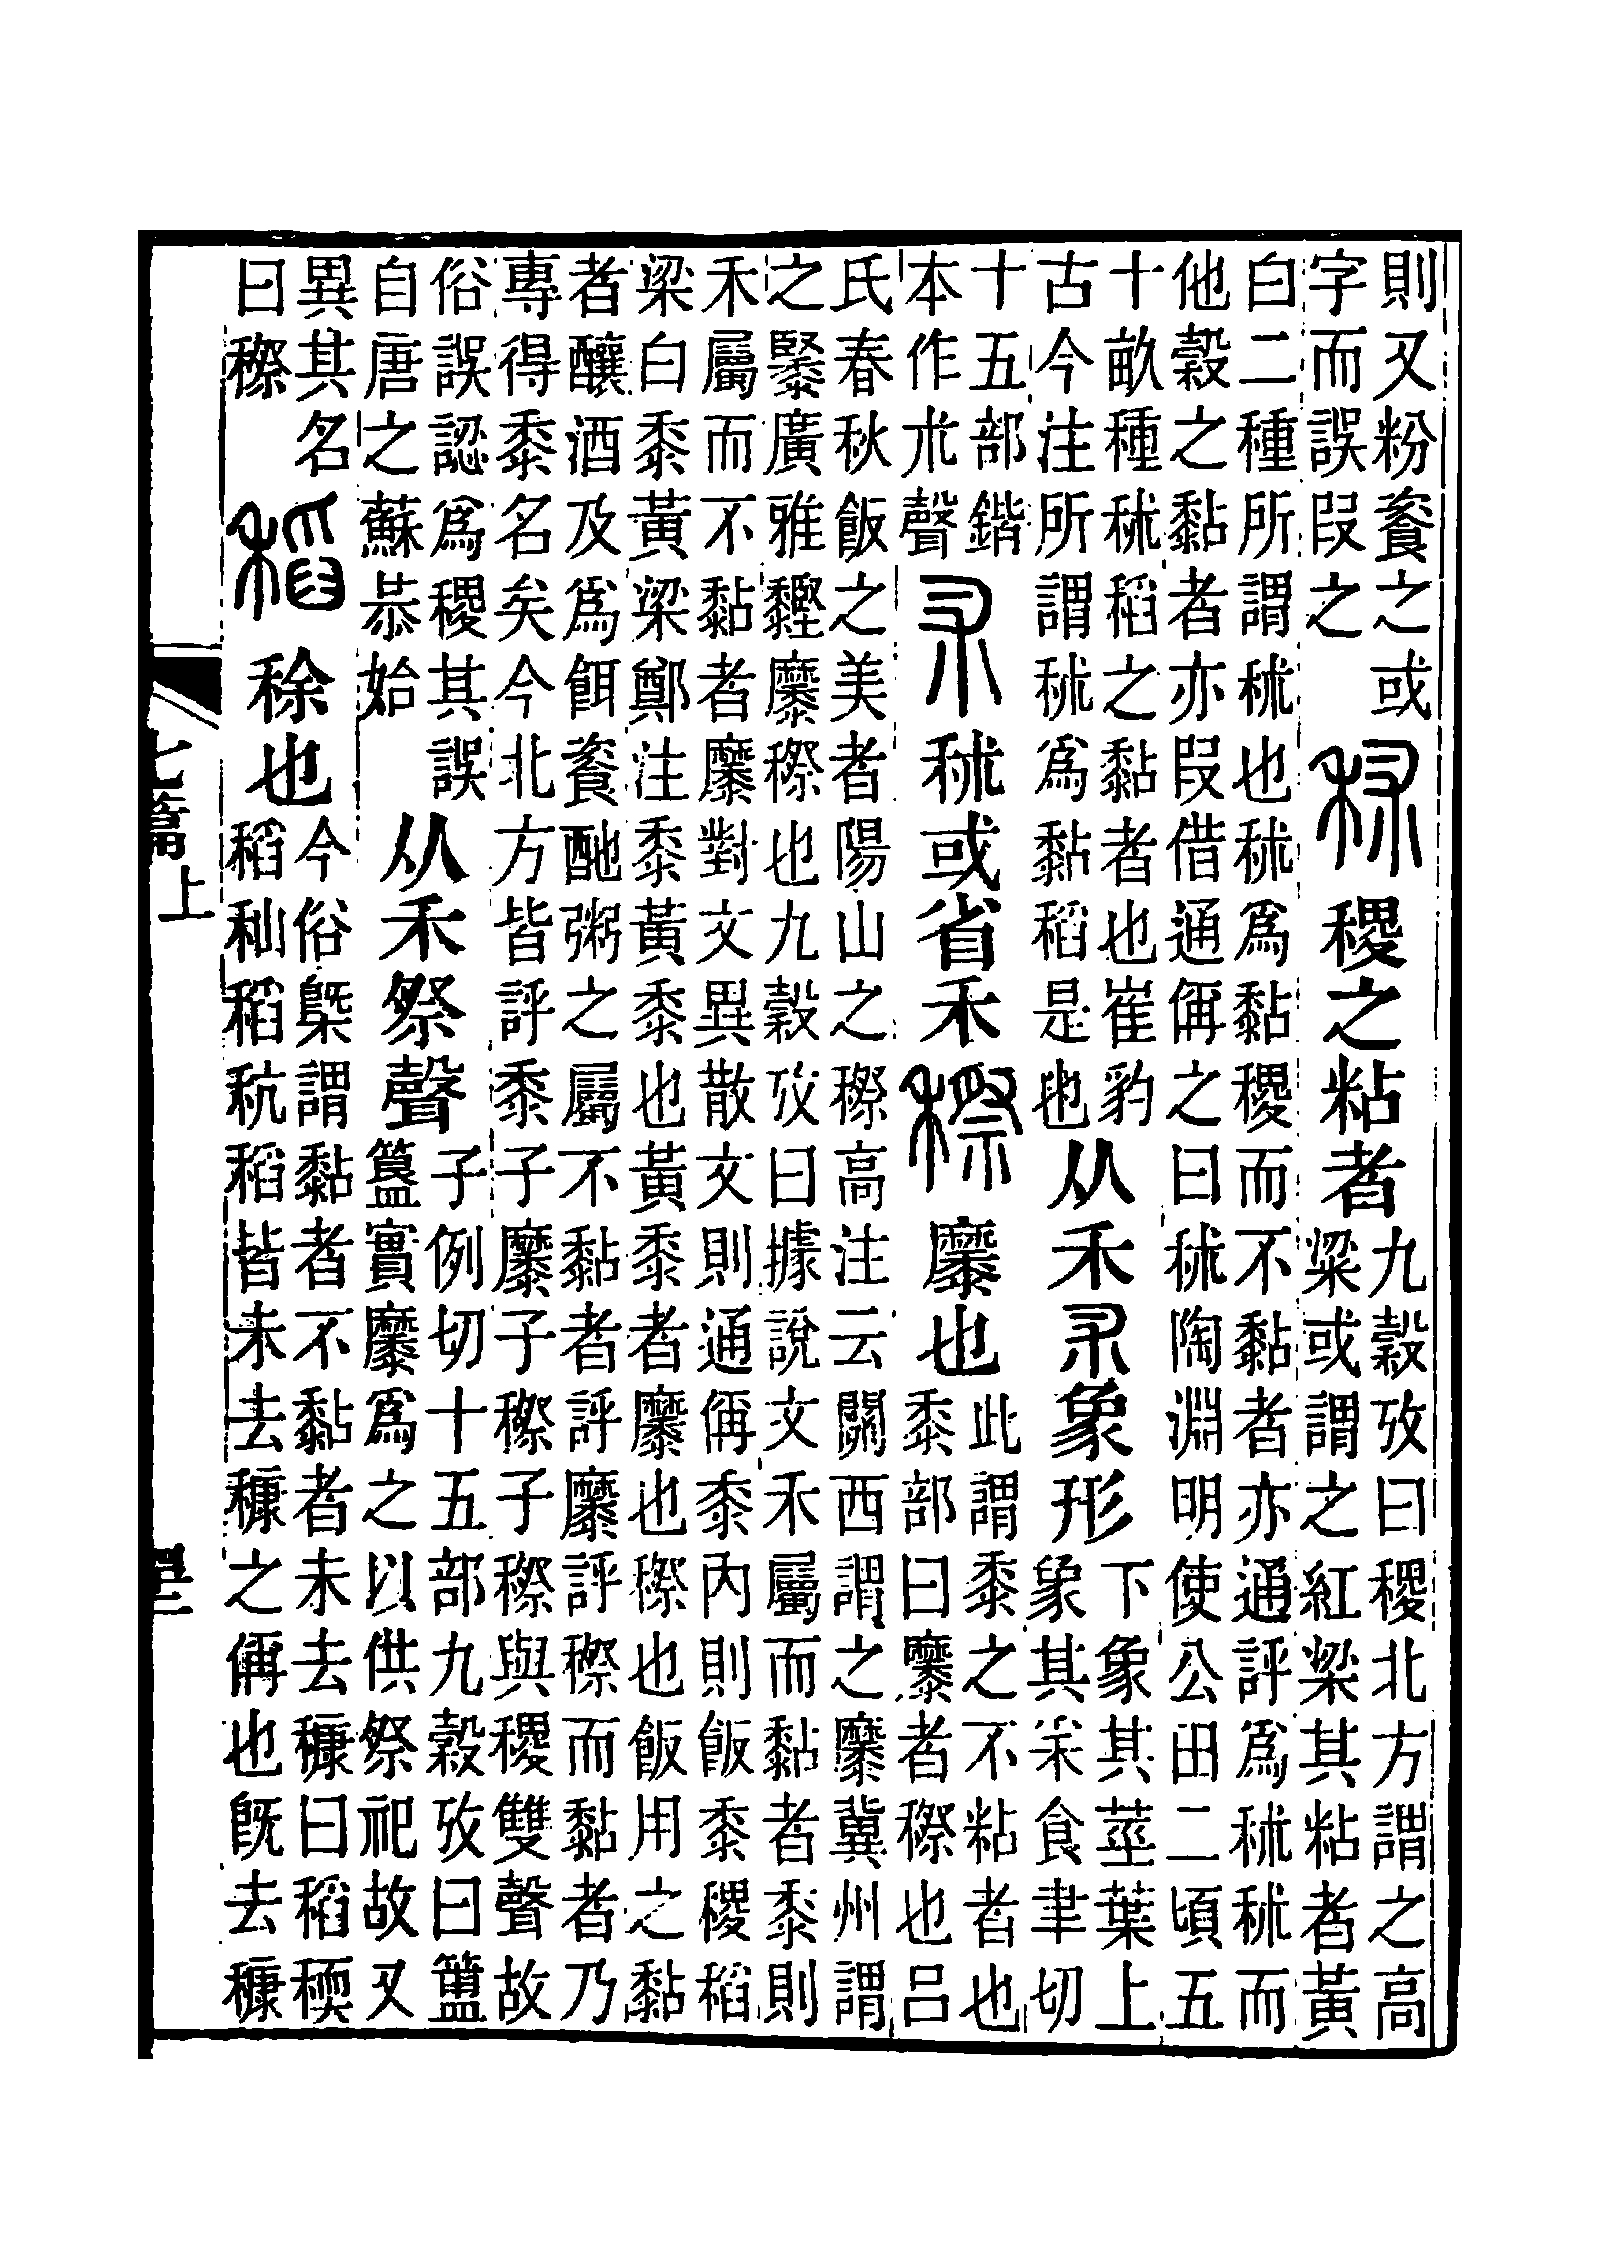 則又粉餈之或字而誤叚之秫稷之粘者九穀攷曰稷北方謂之高粱或謂之紅粱其粘者黃
白二種所謂秫也秫爲黏稷而不黏者亦通評爲秫秫而他穀之黏者亦叚借通偁之曰秫陶淵明使公田二頃五
十畝種秫稻之黏者也崔豹古今注所謂秫爲黏稻是也从禾朮象形下象其莖葉上象其采食聿切
十五部鍇本作朮聲朮秫或省禾穄𪎭也此謂黍之不粘者也黍部曰𪎭者穄也呂
氏春秋飯之美者陽山之穄高注云關西謂之𪎭冀州謂之䵖廣雅𪎭穄也九穀攷曰據說文禾屬而黏者黍則
禾屬而不黏者𪎭對文異散文則通偁黍內則飯黍稷稻粱白黍黃粱鄭注黍黃黍也黃黍者𪎭也穄也飯用之黏
者釀酒及爲餌餈酏粥之屬不黏者評𪎭評穄而黏者乃專得黍名矣今北方皆評黍子𪎭子穄子穄與稷雙聲故
俗誤認爲稷其誤自唐之蘇恭始从禾祭聲子例切十五部九穀攷曰簠簋實𪎭爲之以供祭祀故又
異其名曰穄稻稌也今俗槩謂黏者不黏者未去穅曰稻稬稻秈稻秔稻皆未去穅之偁也旣去穅
七篇上